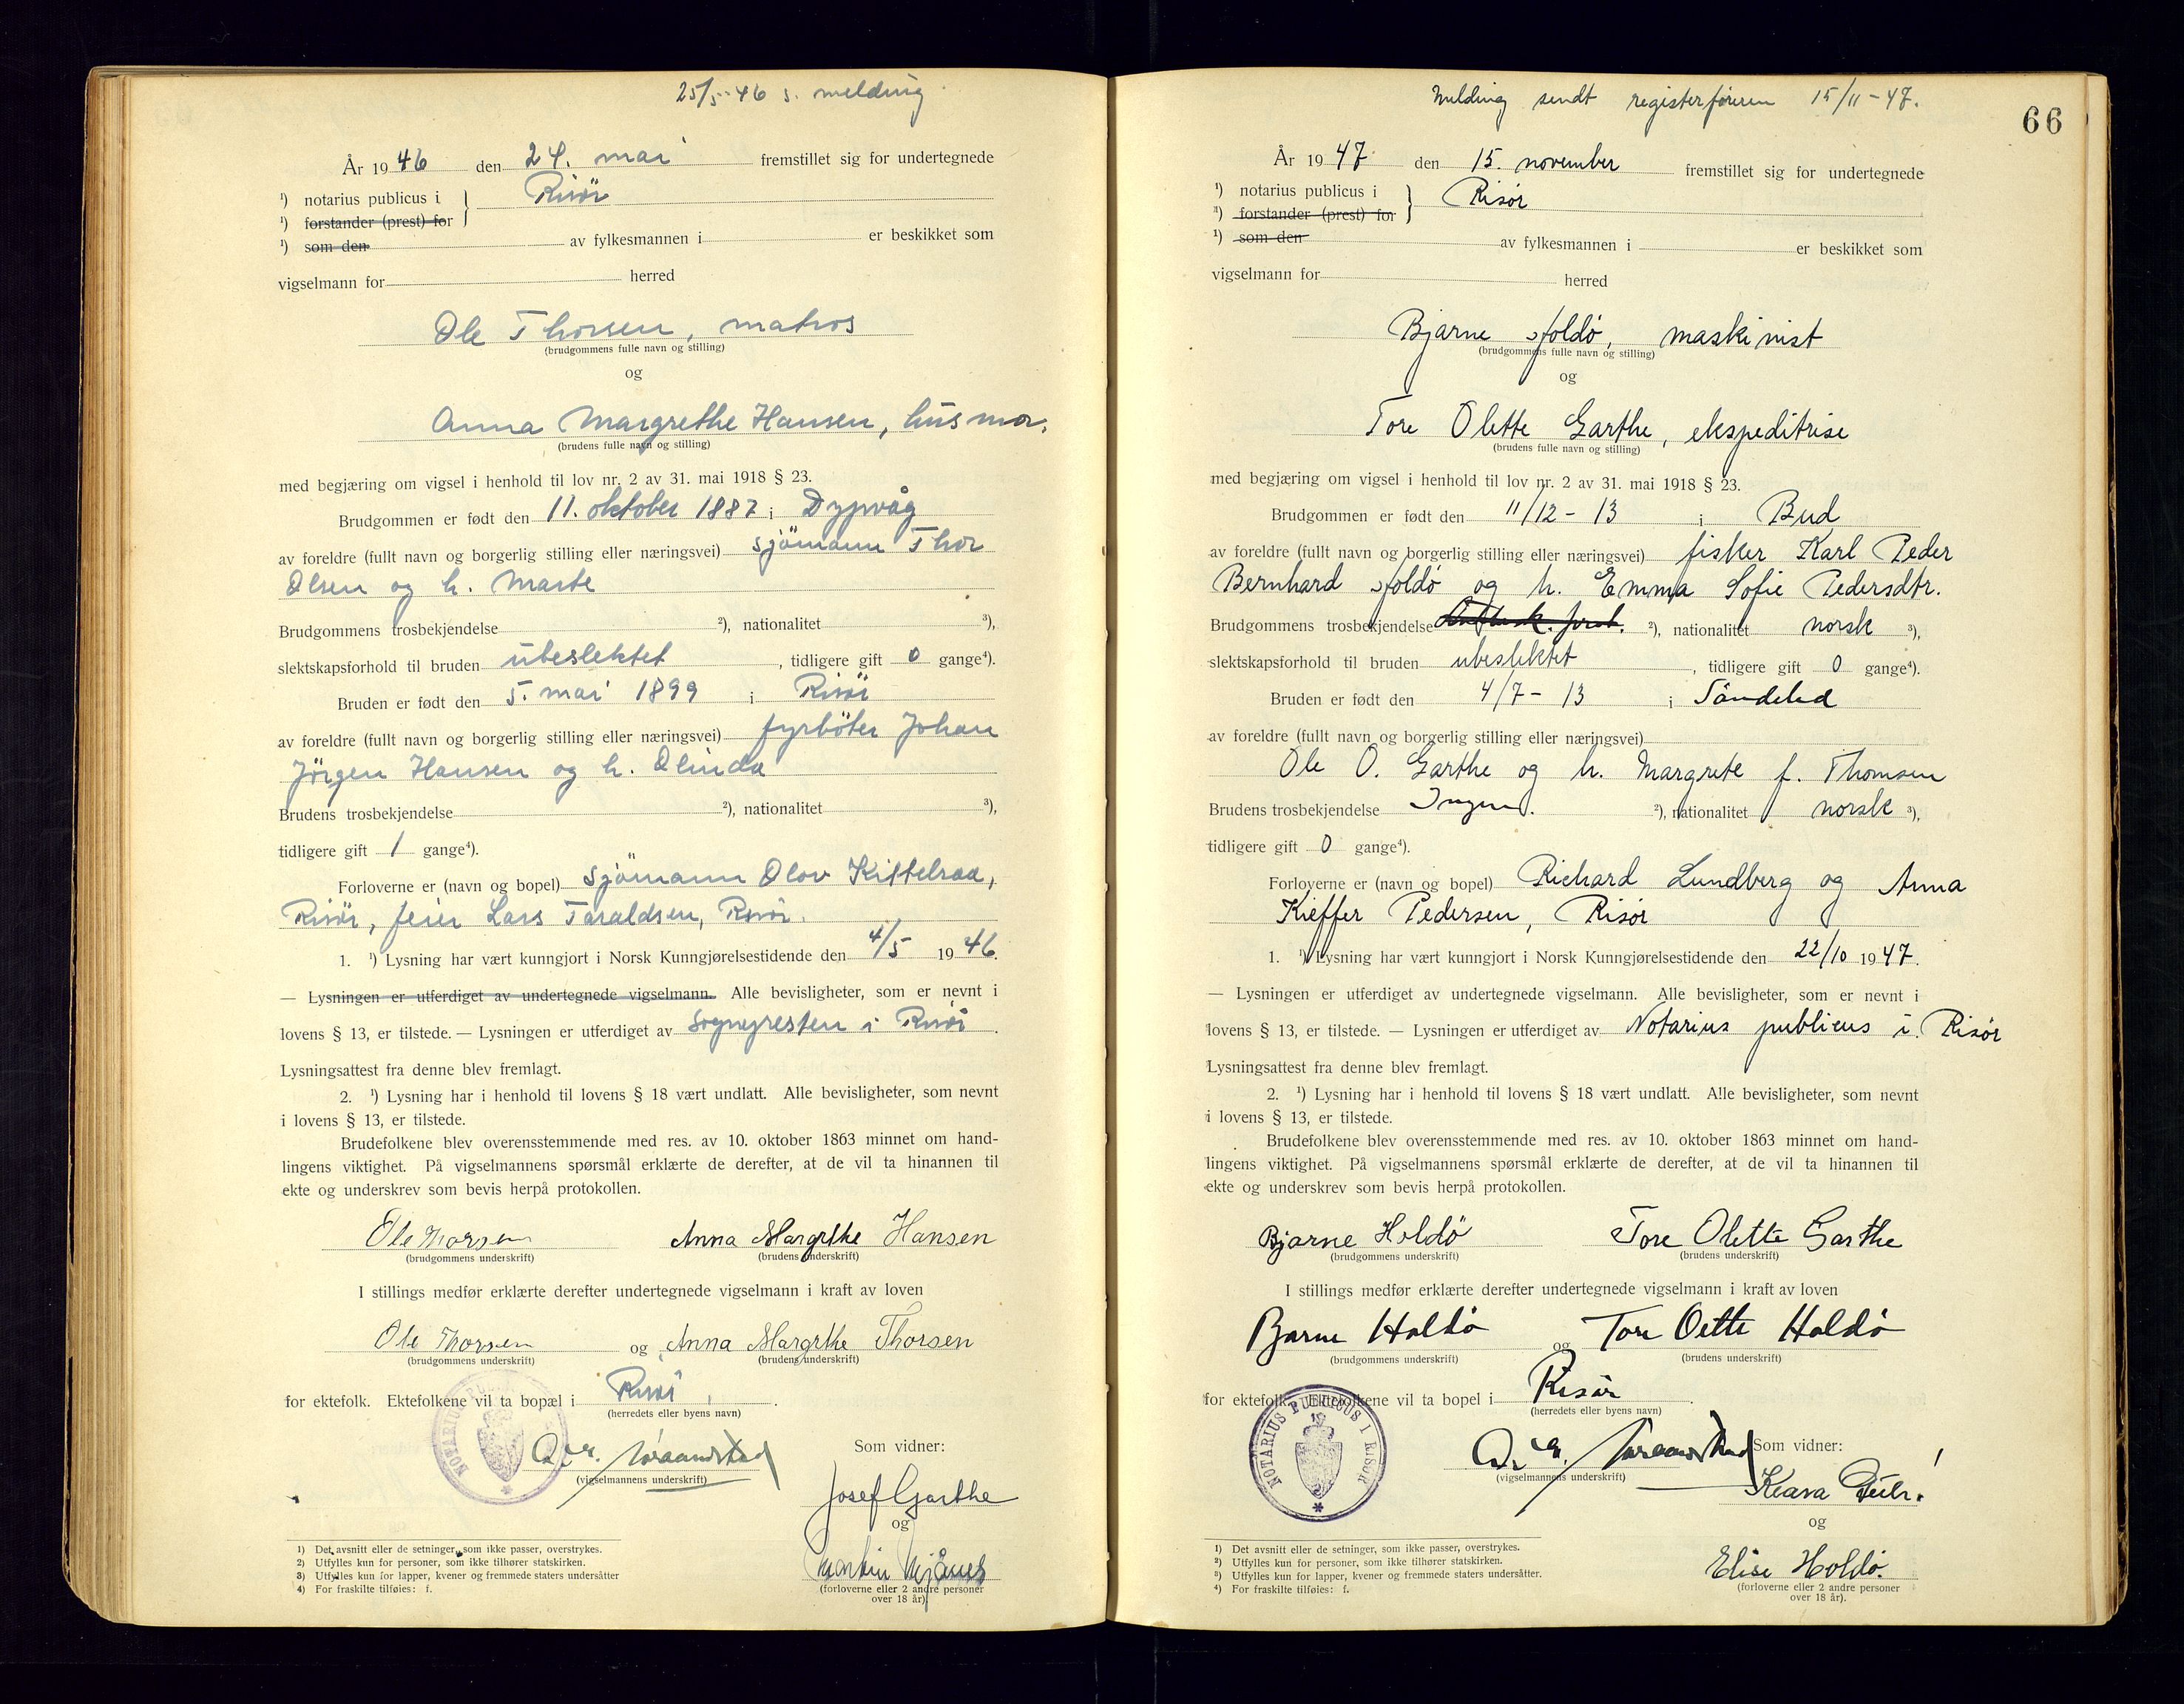 25/5-46 s. melding
År 1946 den 24. mai fremstillet sig for undertegnede
¹) notarius publicus i } Risör
¹) forstander (prest) for
¹) som den av fylkesmannen i er beskikket som
vigselmann for herred
Ole Thorsen, matros
(brudgommens fulle navn og stilling)
og
Anna Margrethe Hansen, husmor.
(brudens fulle navn og stilling)
med begjæring om vigsel i henhold til lov nr. 2 av 31. mai 1918 § 23.
Brudgommen er født den 11. oktober 1887 i Dypvåg
av foreldre (fullt navn og borgerlig stilling eller næringsvei) sjömann Thor
Olsen og h. Marte
Brudgommens trosbekjendelse ²), nationalitet ³),
slektskapsforhold til bruden ubeslektet, tidligere gift 0 gange⁴).
Bruden er født den 5. mai 1899 i Risör
av foreldre (fullt navn og borgerlig stilling eller næringsvei) fyrböter Johan
Jörgen Hansen og h. Olinda
Brudens trosbekjendelse ²), nationalitet ³),
tidligere gift 1 gange⁴).
Forloverne er (navn og bopel) sjömann Olov Kittelsaa,
Risör, feier Lars Taraldsen, Risör.
1. ¹) Lysning har vært kunngjort i Norsk Kunngjørelsestidende den 4/5 1946.
— Lysningen er utferdiget av undertegnede vigselmann. Alle bevisligheter, som er nevnt i
lovens § 13, er tilstede. — Lysningen er utferdiget av Sognepresten i Risör.
Lysningsattest fra denne blev fremlagt.
2. ¹) Lysning har i henhold til lovens § 18 vært undlatt. Alle bevisligheter, som nevnt
i lovens § 13, er tilstede.
Brudefolkene blev overensstemmende med res. av 10. oktober 1863 minnet om hand-
lingens viktighet. På vigselmannens spørsmål erklærte de derefter, at de vil ta hinannen til
ekte og underskrev som bevis herpå protokollen.
Ole Thorsen Anna Margrthe Hansen
(brudgommens underskrift) (brudens underskrift)
I stillings medfør erklærte derefter undertegnede vigselmann i kraft av loven
Ole Thorsen og Anna Margrthe Thorsen
(brudgommens underskrift) (brudens underskrift)
for ektefolk. Ektefolkene vil ta bopæl i Risör.
(herredets eller byens navn)
NOTARIUS PU
Som vidner:
(vigselmannens underskrift)
Josef Garthe
og
Martin
(forloverne eller 2 andre personer
over 18 år).
1) Det avsnitt eller de setninger, som ikke passer, overstrykes.
2) Utfylles kun for personer, som ikke tilhører statskirken.
3) Utfylles kun for lapper, kvener og fremmede staters undersåtter
4) For fraskilte tilføies: f.
Melding sendt registerføreren 15/11-47.
66
År 1947 den 15. november fremstillet sig for undertegnede
¹) notarius publicus i } Risør
¹) forstander (prest) for
¹) som den av fylkesmannen i er beskikket som
vigselmann for herred
Bjarne Holdø, maskinist
(brudgommens fulle navn og stilling)
og
Tore Olette Garthe, ekspeditrise
(brudens fulle navn og stilling)
med begjæring om vigsel i henhold til lov nr. 2 av 31. mai 1918 § 23.
Brudgommen er født den 11/12-13 i Bud
av foreldre (fullt navn og borgerlig stilling eller næringsvei) fisker Karl Peder
Bernhard Holdø og h. Emma Sofie Pedersdtr.
Brudgommens trosbekjendelse ²), nationalitet norsk ³),
slektskapsforhold til bruden ubeslektet, tidligere gift 0 gange⁴).
Bruden er født den 4/7-13 i Søndeled
av foreldre (fullt navn og borgerlig stilling eller næringsvei)
Ole O. Garthe og h. Margrete f. Thomsen
Brudens trosbekjendelse Ingen. ²), nationalitet norsk ³),
tidligere gift 0 gange⁴).
Forloverne er (navn og bopel) Richard Lundberg og Anna
Kieffer Pedersen, Risør
1. ¹) Lysning har vært kunngjort i Norsk Kunngjørelsestidende den 22/10 1947.
— Lysningen er utferdiget av undertegnede vigselmann. Alle bevisligheter, som er nevnt i
lovens § 13, er tilstede. — Lysningen er utferdiget av Notarius publicus i Risør
Lysningsattest fra denne blev fremlagt.
2. ¹) Lysning har i henhold til lovens § 18 vært undlatt. Alle bevisligheter, som nevnt
i lovens § 13, er tilstede.
Brudefolkene blev overensstemmende med res. av 10. oktober 1863 minnet om hand-
lingens viktighet. På vigselmannens spørsmål erklærte de derefter, at de vil ta hinannen til
ekte og underskrev som bevis herpå protokollen.
Bjarne Holdø Tore Olette Garthe
(brudgommens underskrift) (brudens underskrift)
I stillings medfør erklærte derefter undertegnede vigselmann i kraft av loven
Bjarne Holdø og Tore Oette Holdø
(brudgommens underskrift) (brudens underskrift)
for ektefolk. Ektefolkene vil ta bopel i Risør.
(herredets eller byens navn)
NOTARIUS PUBLICUS I RISØR
Som vidner:
(vigselmannens underskrift)
Klara
og
Elise Holdø.
(forloverne eller 2 andre personer
over 18 år).
1) Det avsnitt eller de setninger, som ikke passer, overstrykes.
2) Utfylles kun for personer, som ikke tilhører statskirken.
3) Utfylles kun for lapper, kvener og fremmede staters undersåtter.
4) For fraskilte tilføies: f.